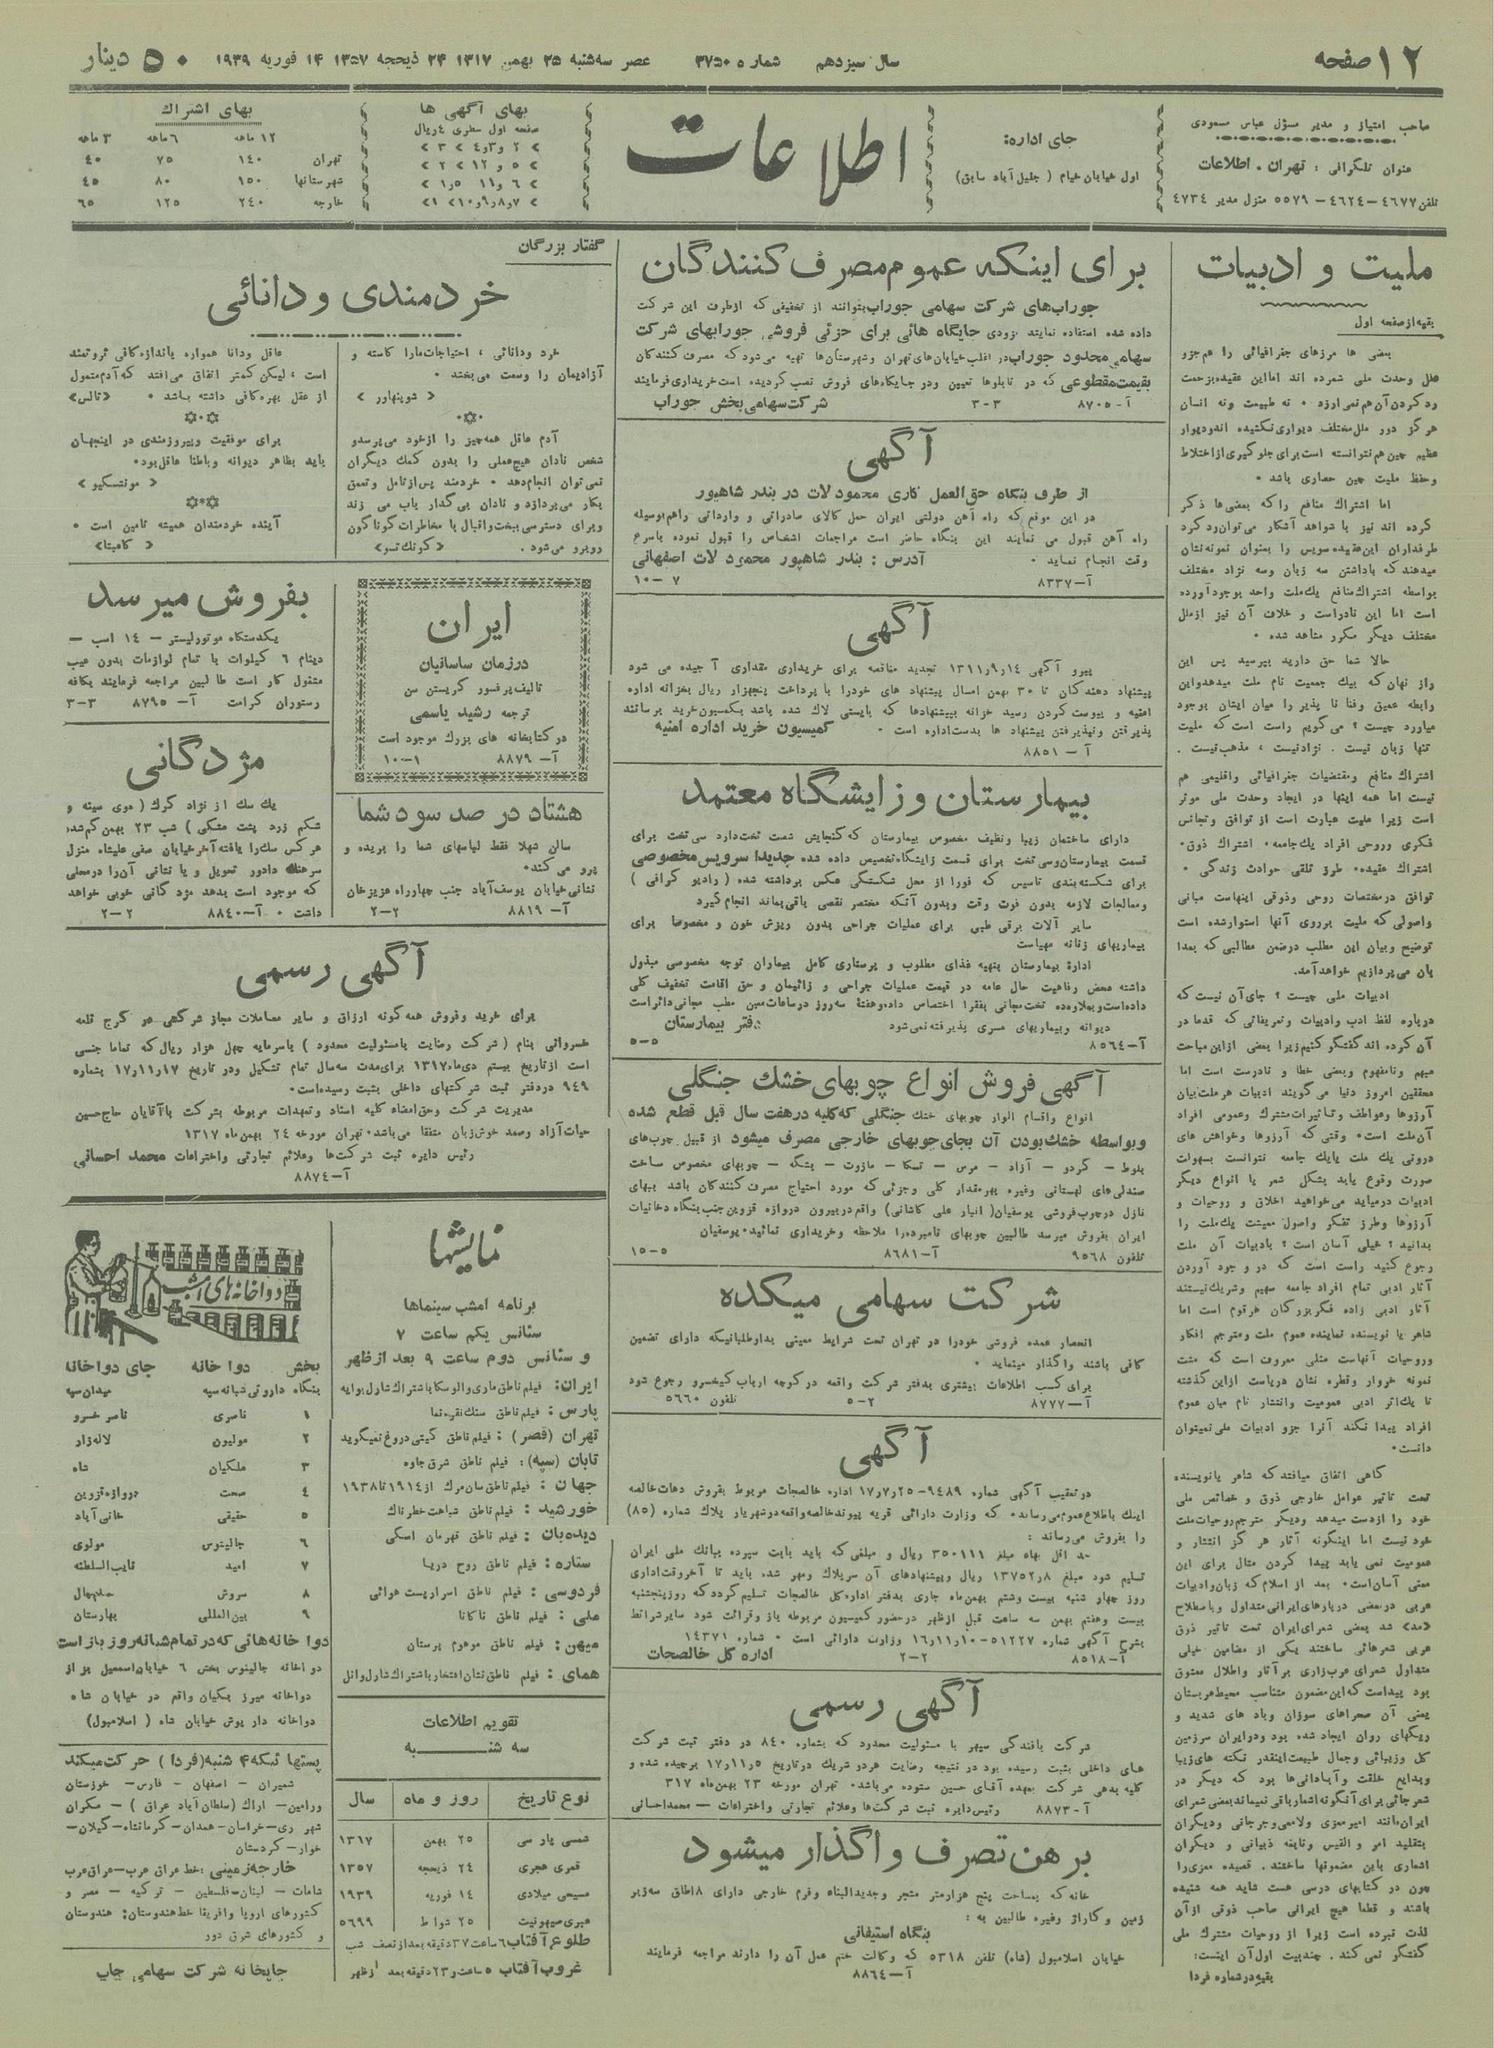 ۱۲ صفحه
سال سیزدهم شماره ۳۷۵۰ عصر سه‌شنبه ۲۵ بهمن ۱۳۱۷ ۲۴ ذیحجه ۱۳۵۷ ۱۴ فوریه ۱۹۳۹
۵۰ دینار
صاحب امتیاز و مدیر مسؤل عباس مسعودی
عنوان تلگرافی : تهران . اطلاعات
تلفن ۴۶۷۷-۴۶۲۴- ۵۵۷۹ منزل مدیر ۴۷۳۴
جای اداره:
اول خیابان خیام ( جلیل آباد سابق)
اطلاعات
بهای آگهی ها
صفحه اول سطری ۴ ریال
بهای اشتراك
۱۲ ماهه ۶ ماهه ۳ ماهه
تهران ۱۴۰ ۷۵ ۴۰
شهرستانها ۱۵۰ ۸۰ ۴۵
خارجه ۲۴۰ ۱۲۵ ۶۵
ملیت و ادبیات
بقیه از صفحه اول
بعضی ها مرزهای جغرافیائی را هم جزو
علل وحدت ملی شمرده اند اما این عقیده بزحمت
رد کردن آن هم نمی ارزد ۰ نه طبیعت و نه انسان
هر گز دور ملل مختلف دیواری نکشیده اند و دیوار
عظیم چین هم نتوانسته است برای جلو گیری از اختلاط
و حفظ ملیت چین حصاری باشد ۰
اما اشتراك منافع را که بعضی‌ها ذکر
کرده اند نیز با شواهد آشکار می‌توان رد کرد
طرفداران این عقیده سویس را بعنوان نمونه نشان
میدهند که با داشتن سه زبان و سه نژاد مختلف
بواسطه اشتراك منافع یك ملت واحد بوجود آورده
است اما این نادر است و خلاف آن نیز از ملل
مختلف دیگر مکرر مشاهد شده ۰
حالا شما حق دارید بپرسید پس این
راز نهان که بیك جمعیت نام ملت میدهد و این
رابطه عمیق و فنا نا پذیر را میان ایشان بوجود
میاورد چیست ؟ می‌گویم راست است که ملیت
تنها زبان نیست . نژاد نیست ، مذهب نیست .
اشتراك منافع و مقتضیات جغرافیائی و اقلیمی هم
نیست اما همه اینها در ایجاد وحدت ملی موثر
است زیرا ملیت عبارت است از توافق و تجانس
فکری و روحی افراد یك جامعه۰ اشتراك ذوق۰
اشتراك عقیده۰ طرز تلقی حوادث زندگی ۰
توافق در مختصات روحی و ذوقی اینهاست مبانی
و اصولی که ملیت بر روی آنها استوار شده است
توضیح و بیان این مطلب در ضمن مطالبی که بعدا
بان می‌پردازیم خواهد آمد.
ادبیات ملی چیست ؟ جای آن نیست که
درباره لفظ ادب و ادبیات و تعریفاتی که قدما در
آن کرده اند گفتگو کنیم زیرا بعضی از این مباحث
مبهم و نامفهوم و بعضی خطا و نادرست است اما
محققین امروز دنیا می گویند ادبیات هر ملت بیان
آرزوها و عواطف و تاثیرات مشترك و عمومی افراد
آن ملت است۰ وقتی که آرزوها و خواهش های
درونی یك ملت یا یك جامعه نتوانست بسهولت
صورت وقوع یابد بشکل شعر یا انواع دیگر
ادبیات در میاید می‌خواهید اخلاق و روحیات و
آرزوها و طرز تفکر و اصول معیشت یك ملت را
بدانید ؟ خیلی آسان است ؟ بادبیات آن ملت
رجوع کنید راست است که در و جود آوردن
آثار ادبی تمام افراد جامعه سهیم و شریك نیستند
آثار ادبی زاده فکر بزرگان هر قوم است اما
شاعر یا نویسنده نماینده عموم ملت و مترجم افکار
و روحیات آنهاست مثلی معروف است که مشت
نمونه خروار و قطره نشان دریاست از این گذشته
تا یك اثر ادبی عمومیت و انتشار تام میان عموم
افراد پیدا نکند آنرا جزو ادبیات ملی نمیتوان
دانست۰
گاهی اتفاق میافتد که شاعر یا نویسنده
تحت تاثیر عوامل خارجی ذوق و خصائص ملی
خود را از دست میدهد و دیگر مترجم روحیات ملت
خود نیست اما اینگونه آثار هر گز انتشار و
عمومیت نمی یابد پیدا کردن مثال برای این
معنی آسان است۰ بعد از اسلام که زبان و ادبیات
عربی در بعضی دربارهای ایرانی متداول و باصطلاح
«مد» شد بعضی شعرای ایران تحت تاثیر ذوق
عربی شعرهائی ساختند یکی از مضامین خیلی
متداول شعرای عرب زاری بر آثار و اطلال معشوق
بود پیداست که این مضمون متناسب محیط عربستان
یعنی آن صحراهای سوزان و باد های شدید و
ریگهای روان ایجاد شده بود و در ایران سرزمین
گل و زیبائی و جمال طبیعت اینقدر نکته های زیبا
و بدایع خلقت و آبادانی‌ها بود که دیگر در
شعر جائی برای آنگونه اشعار باقی نمیماند بعضی شعرای
ایران مانند امیر معزی و لامعی و جرجانی و دیگران
بتقلید امر و القیس و نابغه ذبیانی و دیگران
اشعاری باین مضمونها ساختند. قصیده معزی را
چون در کتابهای درسی هست شاید همه شنیده
باشند و قطعا هیچ ایرانی صاحب ذوقی از آن
لذت نبرده است زیرا از روحیات مشترك ملی
گفتگو نمی کند . چند بیت اول آن اینست:
بقیه در شماره فردا
برای اینکه عموم مصرف کنندگان
جوراب‌های شرکت سهامی جوراب بتوانند از تخفیفی که از طرف این شرکت
داده شده استفاده نمایند بزودی جایگاه هائی برای جزئی فروشی جورابهای شرکت
سهامی محدود جوراب در اغلب خیابان‌های تهران و شهرستان‌ها تهیه می‌شود که مصرف کنندگان
بقیمت مقطوعی که در تابلوها تعیین و در جایگاه‌های فروش نصب گردیده است خریداری فرمایند
آ- ۸۷۰۵ ۳-۳ شرکت سهامی پخش جوراب
آگهی
از طرف بنگاه حق‌العمل کاری محمود لات در بندر شاهپور
در این موقع که راه آهن دولتی ایران حمل کالای صادراتی و وارداتی را هم بوسیله
راه آهن قبول می نمایند این بنگاه حاضر است مراجعات اشخاص را قبول نموده باسرع
وقت انجام نماید ۰ آدرس : بندر شاهپور محمود لات اصفهانی
آ-۸۳۳۷ ۷ -۱۰
آگهی
پیرو آگهی ۱۴ر۹ر۱۳۱۱ تجدید مناقصه برای خریداری مقداری آ جیده می شود
پیشنهاد دهندگان تا ۳۰ بهمن امسال پیشنهاد های خود را با پرداخت پنجهزار ریال بخزانه اداره
امنیه و پیوست کردن رسید خزانه بپیشنهادها که بایستی لاك شده باشد بکمسیون خرید برسانند
پذیرفتن و نپذیرفتن پیشنهاد ها بدست اداره است ۰ کمیسیون خرید اداره امنیه
آ - ۸۸۵۱
بیمارستان و زایشگاه معتمد
دارای ساختمان زیبا و نظیف مخصوص بیمارستان که گنجایش شصت تخت دارد سی تخت برای
قسمت بیمارستان و سی تخت برای قسمت زایشگاه تخصیص داده شده جدیدا سرویس مخصوصی
برای شکسته‌بندی تاسیس که فورا از محل شکستگی عکس برداشته شده ( رادیو گرافی )
و معالجات لازمه بدون فوت وقت و بدون آنکه مختصر نقصی باقی بماند انجام گیرد
سایر آلات برقی طبی برای عملیات جراحی بدون ریزش خون و مخصوصا برای
بیماریهای زنانه مهیاست
ادارهٔ بیمارستان بتهیه غذای مطلوب و پرستاری کامل بیماران توجه مخصوصی مبذول
داشته محض رفاهیت حال عامه در قیمت عملیات جراحی و زائیمان و حق اقامت تخفیف کلی
داده است و بعلاوه ده تخت مجانی بفقرا اختصاص داده و هفتهٔ سه روز در ساعات معین مطب مجانی دائر است
دیوانه و بیماریهای مسری پذیرفته نمی‌شود دفتر بیمارستان
آ-۸۵۶۴ ۵-۵
آگهی فروش انواع چوبهای خشك جنگلی
انواع و اقسام الوار چوبهای خشك جنگلی که کلیه در هفت سال قبل قطع شده
و بواسطه خشك بودن آن بجای چوبهای خارجی مصرف میشود از قبیل چوب‌های
بلوط - گردو - آزاد - مرس - نسکا - مازوت - پشگه - چوبهای مخصوص ساخت
صندلی‌های لهستانی و غیره بهر مقدار کلی و جزئی که مورد احتیاج مصرف کنندگان باشد ببهای
نازل در چوب فروشی یوسفیان( انبار علی کاشانی) واقع در بیرون دروازه قزوین جنب بنگاه دخانیات
ایران بفروش میرسد طالبین چوبهای نامبرده را ملاحظه و خریداری نمائید۰ یوسفیان
تلفون ۹۵۶۸ آ-۸۶۸۱ ۵-۱۵
شرکت سهامی میکده
انحصار عمده فروشی خود را در تهران تحت شرایط معینی بداوطلبانیکه دارای تضمین
کافی باشند واگذار مینماید ۰
برای کسب اطلاعات بیشتری بدفتر شرکت واقعه در کوچه ارباب کیخسرو رجوع شود
آ-۸۷۷۷ ۲-۵ تلفون ۵۶۶۰
آگهی
در تعقیب آگهی شماره ۹۴۸۹-۲۵ر۷ر۱۷ اداره خالصجات مربوط بفروش دهات خالصه
اینك باطلاع عموم می‌رساند۰ که وزارت دارائی قریه پیوند خالصه واقعه در شهریار پلاك شماره (۸۵)
را بفروش می‌رساند :
حد اقل بهاء مبلغ ۳۵۰۱۱۱ ریال و مبلغی که باید بابت سپرده ببانك ملی ایران
تسلیم شود مبلغ ۱۳۷۵۲ر۸ ریال و پیشنهادهای آن سربلاك و مهر شده باید تا آخر وقت اداری
روز چهار شنبه بیست و ششم بهمن ماه جاری بدفتر اداره کل خالصجات تسلیم گردد که روز پنجشنبه
بیست و هفتم بهمن سه ساعت قبل از ظهر در حضور کمیسیون مربوطه باز و قرائت شود سایر شرائط
بشرح آگهی شماره ۵۱۲۲۷-۱۰ر۱۱ر۱۶ وزارت دارائی است ۰ شماره ۱۴۳۷۱
آ-۸۵۱۸ ۲-۲ اداره کل خالصجات
آگهی رسمی
شرکت بافندگی سپهر با مسئولیت محدود که بشماره ۸۴۰ در دفتر ثبت شرکت
های داخلی بثبت رسیده بود در نتیجه رضایت هر دو شریك در تاریخ ۵ر۱۱ر۱۷ برچیده شده و
کلیه بدهی شرکت بعهده آقای حسین ستوده می‌باشد۰ تهران مورخه ۲۳ بهمن ماه ۳۱۷
آ-۸۸۷۳ رئیس دایره ثبت شرکت‌ها و علائم تجارتی و اختراعات - محمد احسانی
برهن تصرف واگذار میشود
خانه که بمساحت پنج هزار متر مشجر و جدید البناء و فرم خارجی دارای ۸ اطاق سه زیر
زمین و کاراژ و غیره طالبین به :
بنگاه استیفانی
خیابان اسلامبول (شاه) تلفن ۵۳۱۸ که وکالت ختم عمل آن را دارند مراجعه فرمایند
آ-۸۸۶۴
گفتار بزرگان
خردمندی و دانائی
خرد و دانائی ، احتیاجات مارا کاسته و
آزادیمان را وسعت می بخشد ۰
« شوپنهاور »
آدم عاقل همه چیز را از خود می‌پرسد و
شخص نادان هیچ عملی را بدون کمك دیگران
نمی توان انجام دهد ۰ خردمند پس از تامل و تعمق
بکار می‌پردازد و نادان بی گدار باب می زند
و برای دسترسی ببخت و اقبال با مخاطرات گوناگون
روبرو می‌شود . «کونك تسو»
عاقل و دانا همواره باندازه کافی ثروتمند
است ، لیکن کمتر اتفاق می افتد که آدم متمول
از عقل بهره کافی داشته باشد ۰ «تالس»
برای موفقیت و پیروزمندی در اینجهان
باید بظاهر دیوانه و باطنا عاقل بود۰
« مونتسکیو »
آینده خردمندان همیشه تامین است ۰
« کامبتا»
ایران
در زمان ساسانیان
تالیف پرفسور کریستن سن
ترجمه رشید یاسمی
در کتابخانه های بزرك موجود است
آ- ۸۸۷۹ ۱-۱۰
بفروش میرسد
یکدستگاه موتور لیستر - ۱۴ اسب -
دینام ۶ کیلوات با تمام لوازمات بدون عیب
مشغول کار است طالبین مراجعه فرمایند بکافه
رستوران کرامت آ- ۸۷۹۵ ۳-۳
هشتاد در صد سود شما
سالن شهلا فقط لباسهای شما را بریده و
پرو می کند۰
نشانی خیابان یوسف آباد جنب چهارراه عزیز خان
آ- ۸۸۱۹ ۲-۲
مژدگانی
یك سك از نژاد گرك ( موی سینه و
شکم زرد پشت مشکی ) شب ۲۳ بهمن گم شده
هر کس سك را یافته آخر خیابان صفی علیشاه منزل
سرهنك دادور تحویل و یا نشانی آن را در محلی
که موجود است بدهد مژد گانی خوبی خواهد
داشت ۰ آ-۸۸۴۰ ۲-۲
آگهی رسمی
برای خرید و فروش همه گونه ارزاق و سایر معاملات مجاز شرکتی در کرج قلعه
خسروانی بنام ( شرکت رضایت با مسئولیت محدود ) با سرمایه چهل هزار ریال که تماما جنسی
است از تاریخ بیستم دی ماه ۱۳۱۷ برای مدت سه سال تمام تشکیل و در تاریخ ۱۷ر۱۱ر۱۷ بشماره
۹۴۹ در دفتر ثبت شرکتهای داخلی بثبت رسیده است۰
مدیریت شرکت و حق امضاء کلیه اسناد و تعهدات مربوطه بشرکت با آقایان حاج حسین
حیات آزاد و صمد خوش زبان متفقا می باشد۰ تهران مورخه ۲۴ بهمن ماه ۱۳۱۷
رئیس دایره ثبت شرکت‌ها و علائم تجارتی و اختراعات محمد احسانی
آ-۸۸۷۴
نمایشها
برنامه امشب سینماها
سئانس یکم ساعت ۷
و سئانس دوم ساعت ۹ بعد از ظهر
ایران: فیلم ناطق ماری والوسکا باشتراك شارل بوایه
پارس: فیلم ناطق سنك نقره نما
تهران (قصر) : فیلم ناطق گیتی دروغ نمیگوید
تابان (سپه): فیلم ناطق شرق جاوه
جهان: فیلم ناطق سان مرك از ۱۹۱۴ تا ۱۹۳۸
خورشید: فیلم ناطق شباهت خطرناك
دیده‌بان: فیلم ناطق قهرمان اسکی
ستاره: فیلم ناطق روح دریا
فردوسی: فیلم ناطق اسرار پست هوائی
ملی: فیلم ناطق ناکانا
میهن: فیلم ناطق موهوم پرستان
همای: فیلم ناطق نشان افتخار باشتراك شارل وانل
تقویم اطلاعات
سه شنبه
نوع تاریخ روز و ماه سال
شمسی پارسی ۲۵ بهمن ۱۳۱۷
قمری هجری ۲۴ ذیحجه ۱۳۵۷
مسیحی میلادی ۱۴ فوریه ۱۹۳۹
عبری صیونیت ۲۵ شواط ۵۶۹۹
طلوع آفتاب ۶ ساعت ۳۷ دقیقه بعد از نصف شب
غروب آفتاب ۵ ساعت و ۲۳ دقیقه بعد از ظهر
دواخانه‌های امشب
بخش دوا خانه جای دواخانه
بنگاه داروئی شبانه سپه میدان سپه
۱ ناصری ناصر خسرو
۲ مولیون لاله زار
۳ ملکیان شاه
۴ صحت دروازه قزوین
۵ حقیقی خانی آباد
۶ جالینوس مولوی
۷ امید نایب السلطنه
۸ سروش
۹ بین‌المللی بهارستان
دوا خانه هائی که در تمام شبانه روز باز است
دواخانه جالینوس بخش ۶ خیابان اسمعیل بزاز
دواخانه میرز یکیان واقع در خیابان شاه
دواخانه داریوش خیابان شاه ( اسلامبول)
پستها ئیکه ۴ شنبه (فردا ) حرکت میکند
شمیران - اصفهان - فارس- خوزستان
ورامین- اراك (سلطان آباد عراق ) - مکران
شهر ری-خراسان- همدان- کرمانشاه-گیلان-
خوار- کردستان
خارجه زمینی: خط عراق عرب-عراق عرب
شامات - لبنان-فلسطین - ترکیه - مصر و
کشورهای اروپا و افریقا خط هندوستان: هندوستان
و کشورهای شرق دور
چاپخانه شرکت سهامی چاپ